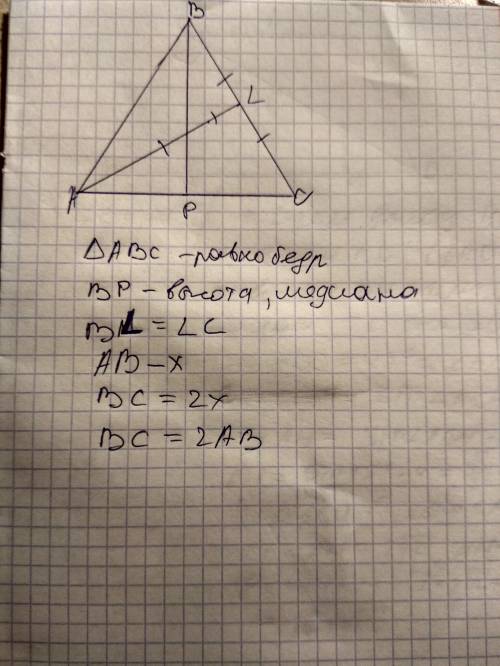 B
L
A
P
C
△ABC - равнобедр
BP - высота, медиана
BL = LC
AB - x
BC = 2x
BC = 2AB